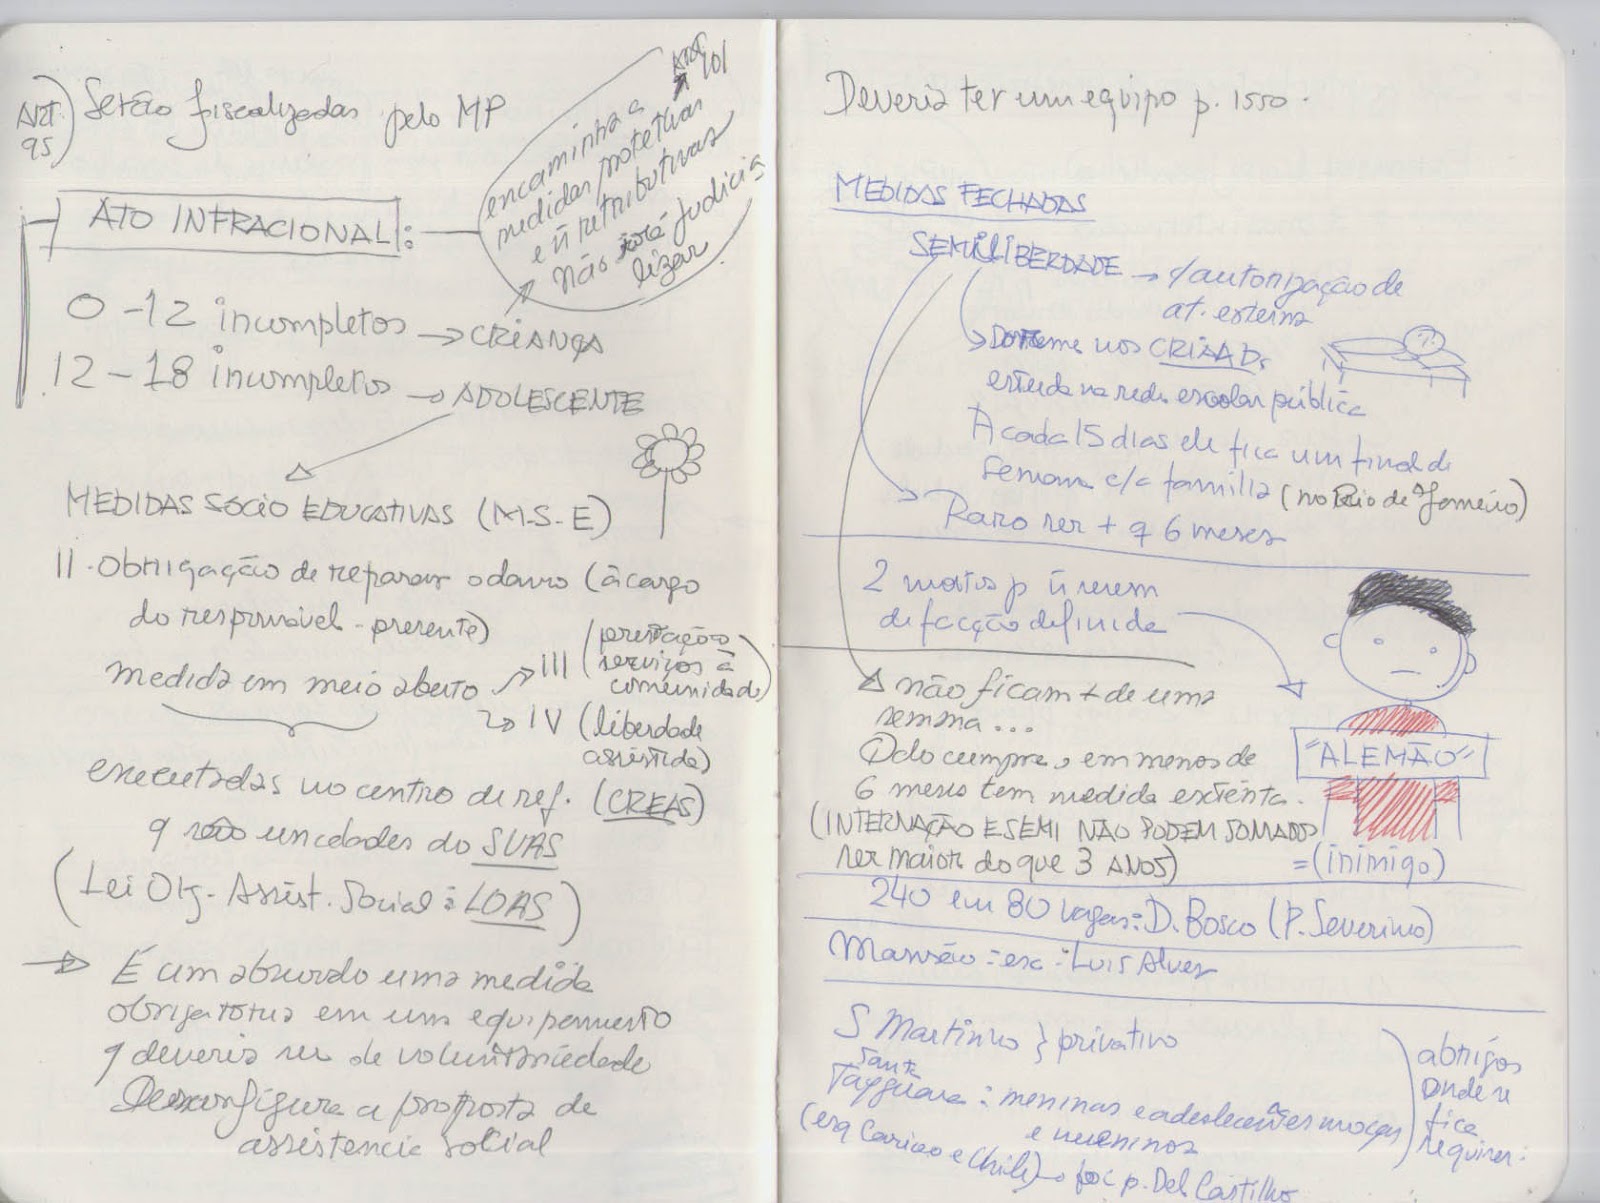 ART. 95) Serão fiscalizadas pelo MP
ART 101
encaminha a
medidas protetivas
e ñ retributivas
Não irá judicia
lizar
ATO INFRACIONAL:
0 - 12 incompletos → CRIANÇA
12 - 18 incompletos → ADOLESCENTE
MEDIDAS SÓCIO EDUCATIVAS (M-S-E)
II - Obrigação de reparar o dano (à cargo
do responsável - presente)
medida em meio aberto → III (prestação
serviços à
comunidade)
→ IV (liberdade
assistida)
executadas no centro de ref. (CREAS)
q são unidades do SUAS
(Lei Org. Assist. Social : LOAS)
→ É um absurdo uma medida
obrigatória em um equipamento
q deveria ser de voluntariedade
Desconfigura a proposta de
assistencia social
Deveria ter um equipo p. 1550.
MEDIDAS FECHADAS
SEMILIBERDADE → c/autorização de
at. externa
→ Dorme nos CRIAADs
estuda na rede escolar pública
A cada 15 dias ele fica um final de
semana c/a família (no Rio de Janeiro)
→ Raro ser + q 6 meses
2 mortos p ñ serem
de facção definida
→ não ficam + de uma
semana...
Qdo cumpre, em menos de
6 meses tem medida extinta.
(INTERNAÇÃO E SEMI NÃO PODEM SOMADOS
ser maior do que 3 ANOS)
"ALEMÃO"
=(inimigo)
240 em 80 vagas: D. Bosco (P. Severino)
Mansão = ex: Luis Alves
S Martinho } privativo
Taiguara : meninas e adolescentes moças
e meninos
(esq Carioca e Chile) → foi p. Del Castilho
abrigos
onde se
fica
requirer: